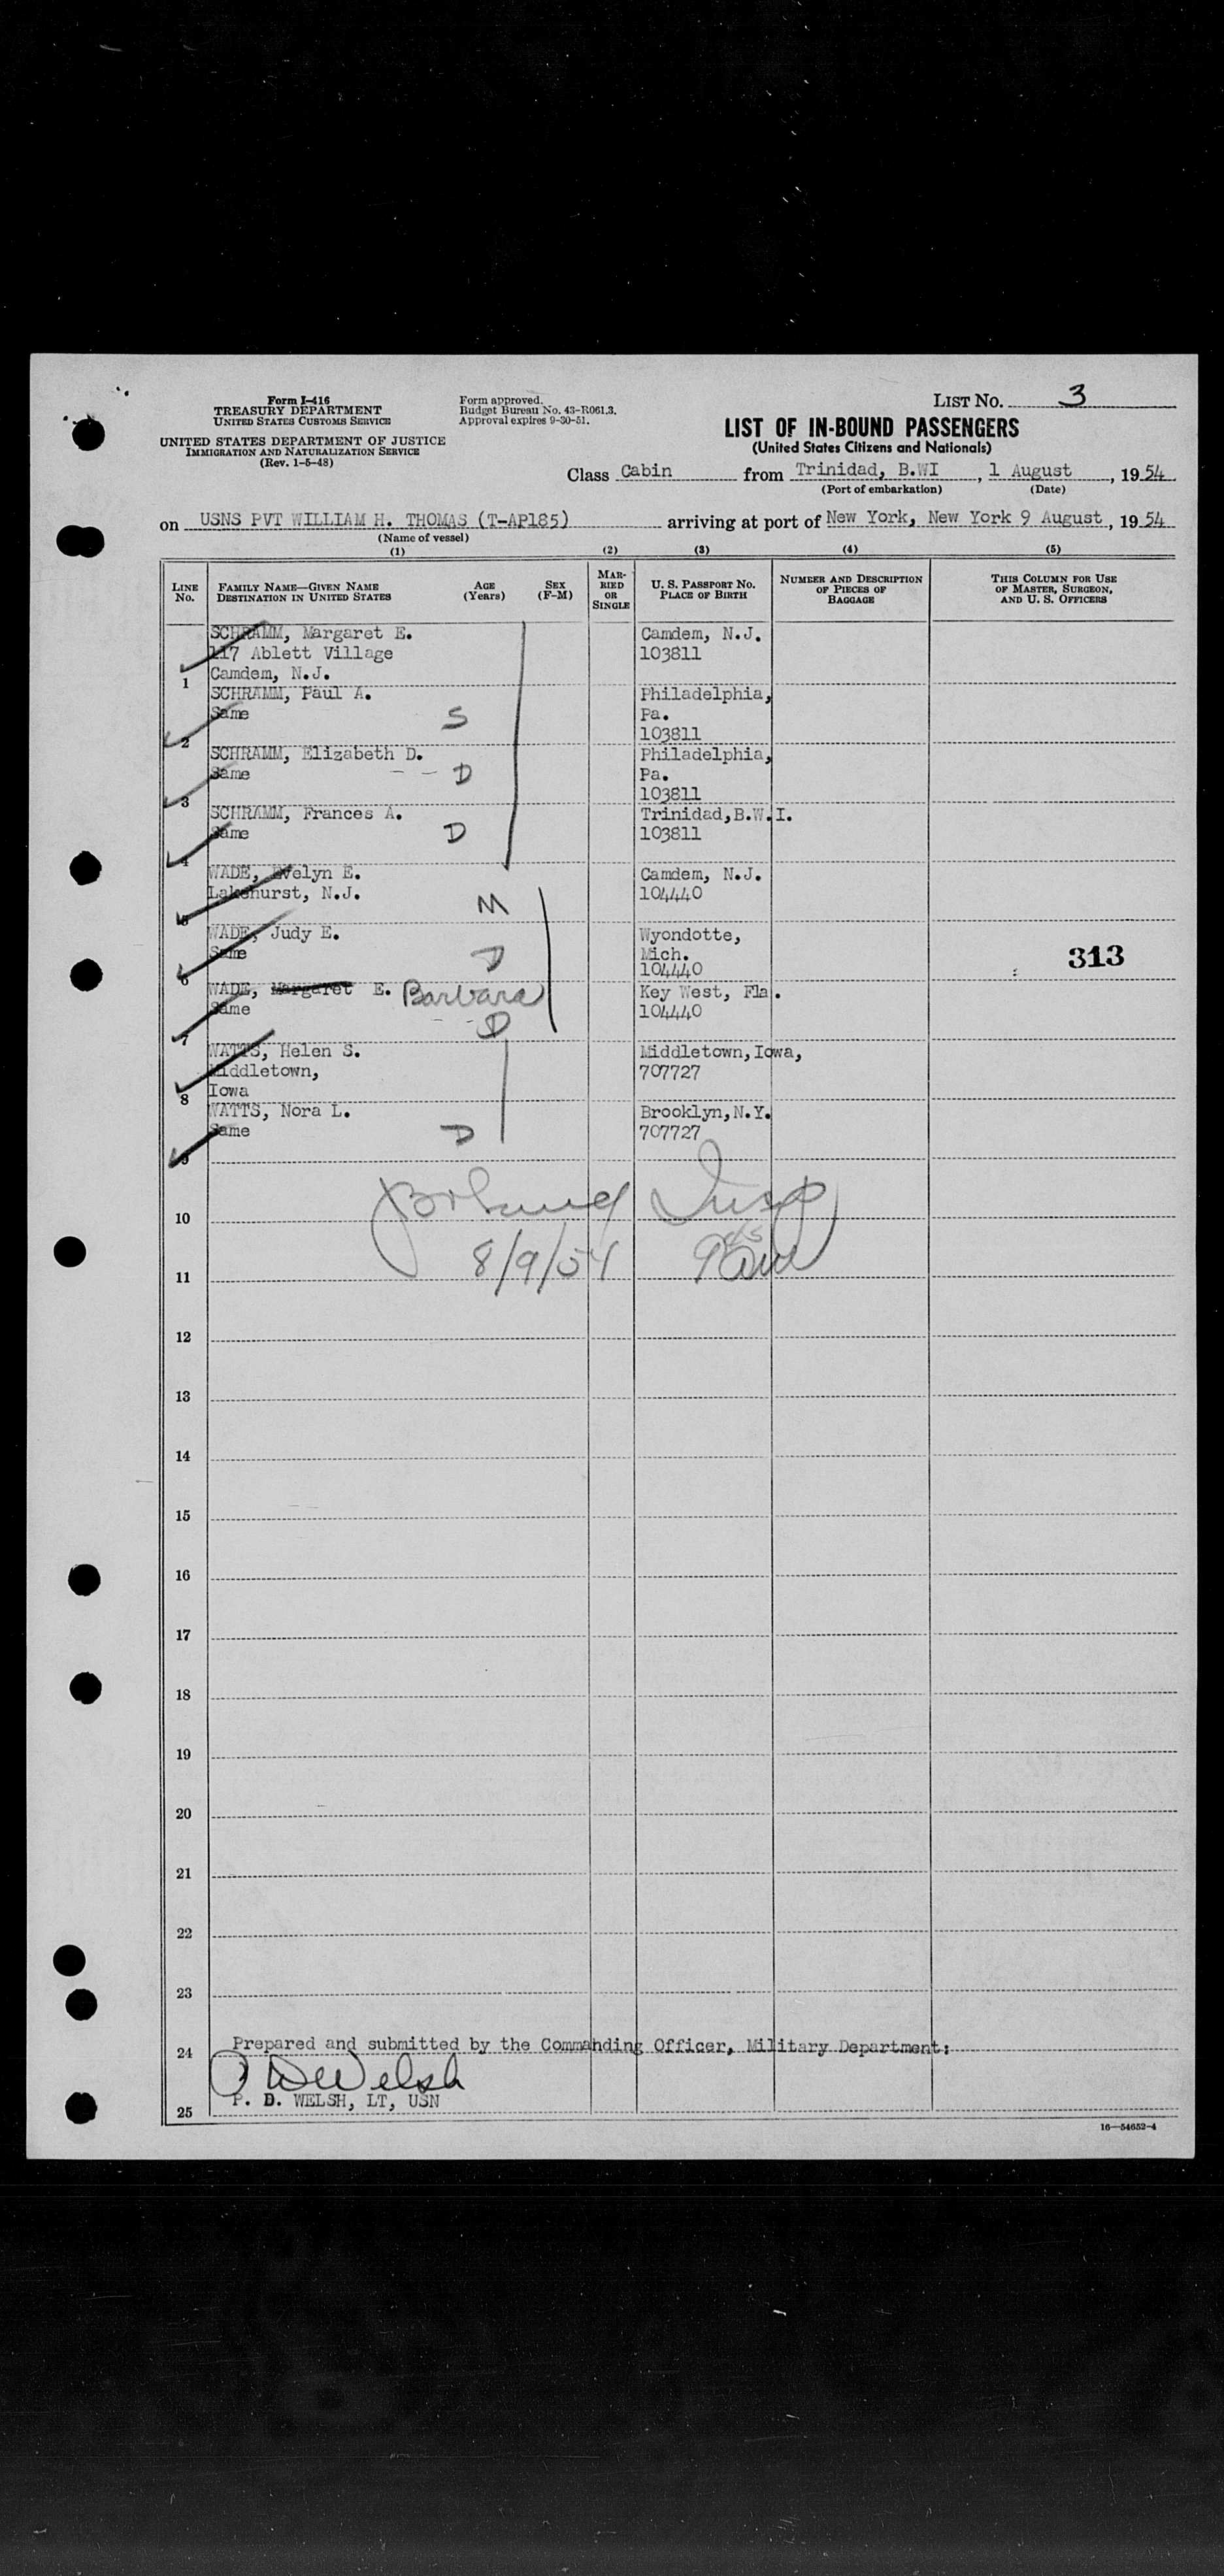 LIST NO. 3
Form I-416
TREASURY DEPARTMENT
UNITED STATES CUSTOMS SERVICE
UNITED STATES DEPARTMENT OF JUSTICE
IMMIGRATION AND NATURALIZATION SERVICE
(Rev. 1-5-48)
Form approved.
Budget Bureau No. 43-R061.3.
Approval expires 9-30-51.
LIST OF IN-BOUND PASSENGERS
(United States Citizens and Nationals)
Class Cabin from Trinidad, B.WI , 1 August , 1954
(Port of embarkation) (Date)
on USNS PVT WILLIAM H. THOMAS (T-AP185) arriving at port of New York, New York 9 August , 1954
(Name of vessel)
(1) (2) (3) (4) (5)
LINE NO. FAMILY NAME—GIVEN NAME DESTINATION IN UNITED STATES AGE (Years) SEX (F-M) MARRIED OR SINGLE U. S. PASSPORT NO. PLACE OF BIRTH NUMBER AND DESCRIPTION OF PIECES OF BAGGAGE THIS COLUMN FOR USE OF MASTER, SURGEON, AND U. S. OFFICERS
SCHRAMM, Margaret E. Camdem, N.J.
117 Ablett Village 103811
1 Camdem, N.J.
SCHRAMM, Paul A. Philadelphia,
Same S Pa.
2 103811
SCHRAMM, Elizabeth D. Philadelphia,
Same D Pa.
3 103811
SCHRAMM, Frances A. Trinidad,B.W.I.
Same D 103811
4
WADE, Evelyn E. Camdem, N.J.
Lakehurst, N.J. M 104440
5
WADE, Judy E. Wyondotte,
Same D Mich. 313
6 104440
WADE, Margaret E. Barbara Key West, Fla.
Same D 104440
7
WATTS, Helen S. Middletown,Iowa,
Middletown, 707727
8 Iowa
WATTS, Nora L. Brooklyn,N.Y.
Same D 707727
9
10
8/9/54
11
12
13
14
15
16
17
18
19
20
21
22
23
Prepared and submitted by the Commanding Officer, Military Department:
24
P D Welsh
P. D. WELSH, LT, USN
25
16—54652-4